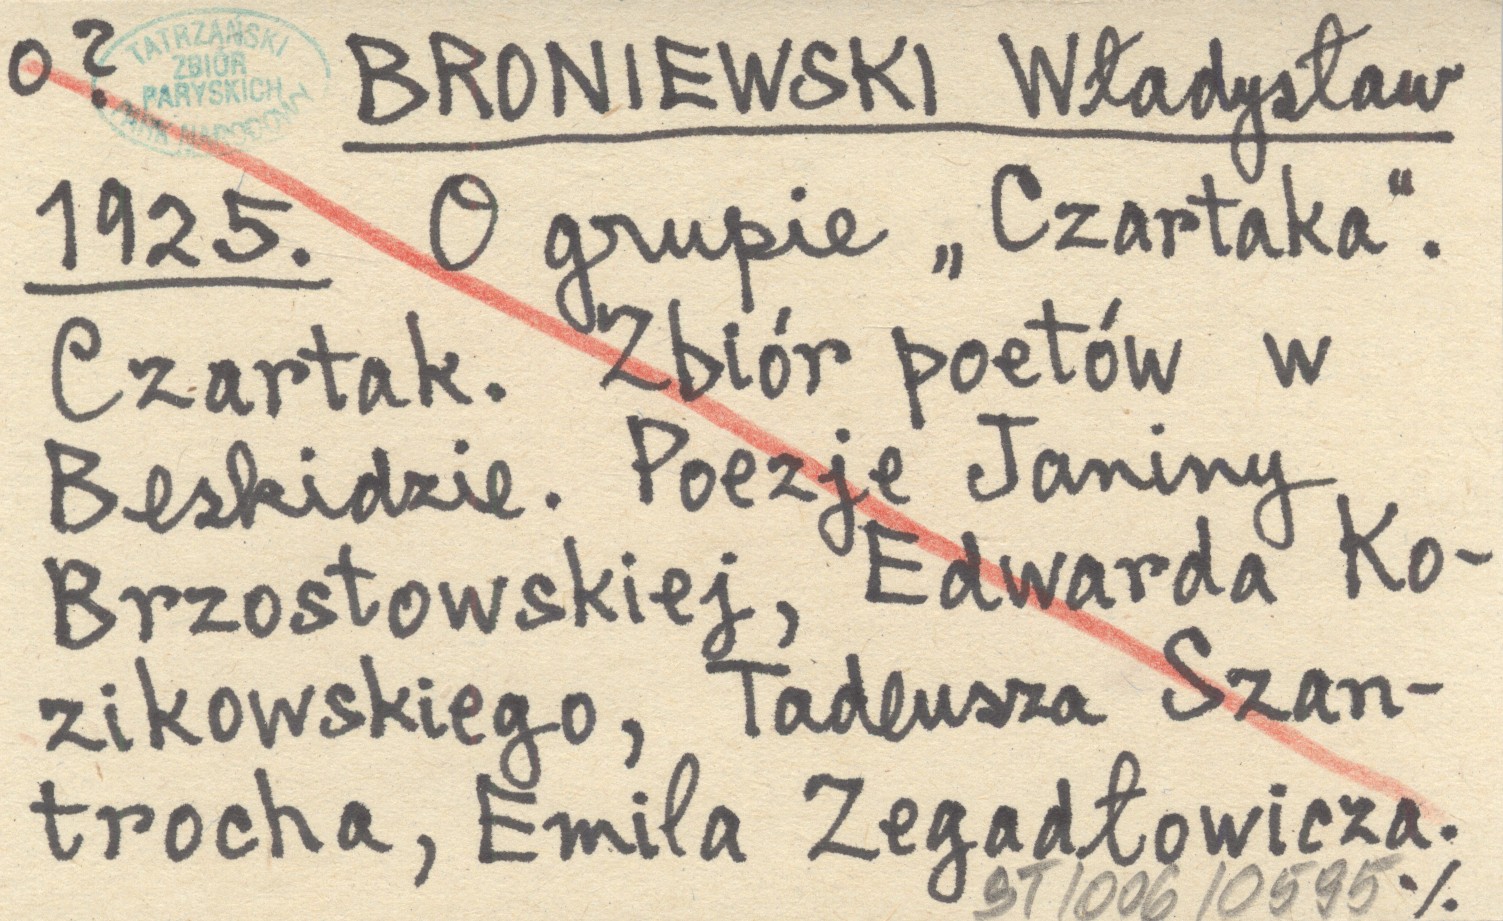 o?
TATRZAŃSKI
ZBIÓR
PARYSKICH
PARK NARODOWY
BRONIEWSKI Władysław
1925. O grupie „Czartaka“.
Czartak. Zbiór poetów w
Beskidzie. Poezje Janiny
Brzostowskiej, Edwarda Ko-
zikowskiego, Tadeusza Szan-
trocha, Emila Zegadłowicza.
ST/006/0595 ·/.